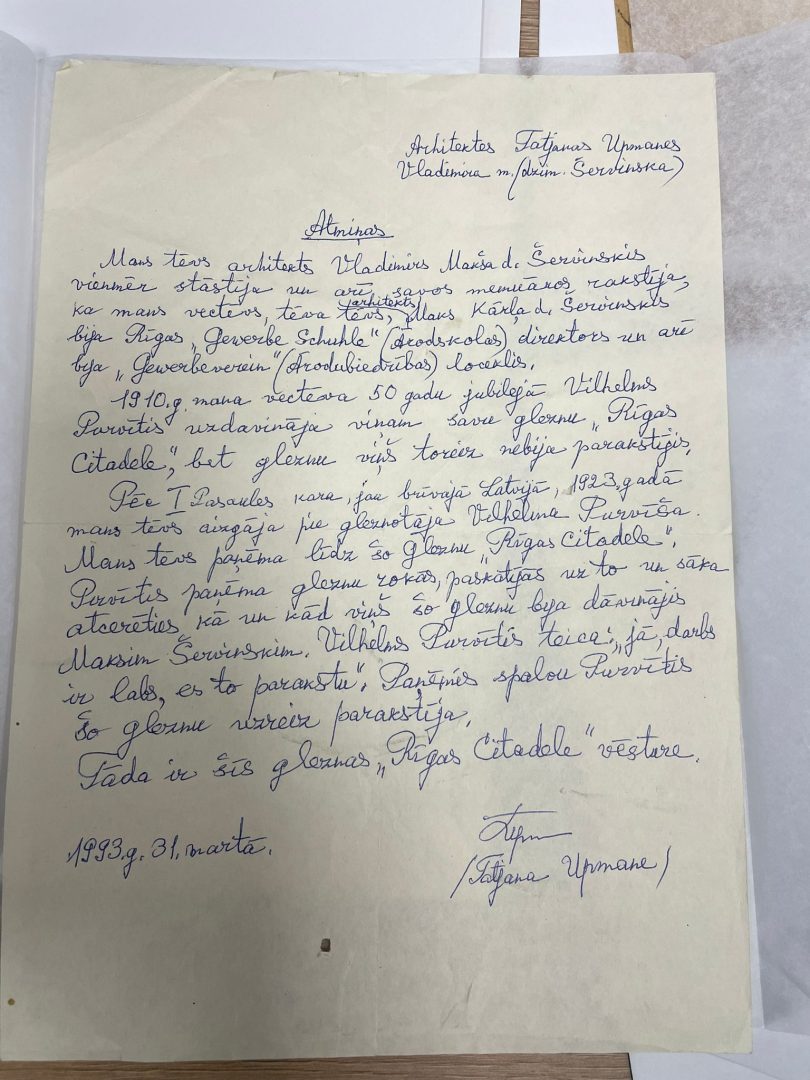 Arhitektes Tatjanas Upmanes
Vladimira m. (dzim. Šervinska)
Atmiņas
Mans tēvs arhitekts Vladimirs Makša d. Šervinskis
vienmēr stāstīja un arī savos memuāros rakstīja,
ka mans vectēvs, tēva tēvs, arhitekts, Maks Kārļa d. Šervinskis
bija Rīgas „Gewerbe Schuhle" (Arodskolas) direktors un arī
bija „Gewerbeverein" (Arodubiedrības) loceklis.
1910.g. mana vectēva 50 gadu jubilejā Vilhelms
Purvītis uzdavināja viņam savu gleznu „Rīgas
Citadele", bet gleznu viņš toreiz nebija parakstījis.
Pēc I Pasaules kara, jau brīvajā Latvijā, 1923.gadā
mans tēvs aizgāja pie gleznotāja Vilhelma Purvīša.
Mans tēvs paņēma līdz šo gleznu „Rīgas Citadele".
Purvītis paņēma gleznu rokās, paskatījās uz to un sāka
atcerēties, kā un kad viņš šo gleznu bija dāvinājis
Maksim Šervinskim. Vilhelms Purvītis teica: „jā, darbs
ir labs, es to parakstu". Paņēmis spalvu Purvītis
šo gleznu uzreiz parakstīja.
Tāda ir šīs gleznas „Rīgas Citadele" vēsture.
1993.g. 31. martā.
(Tatjana Upmane)